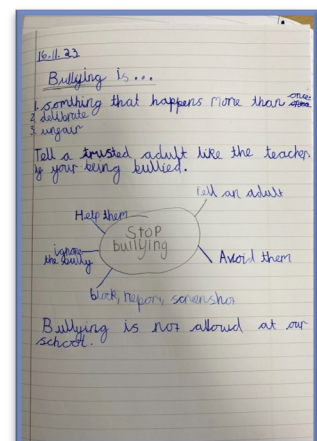 16.11.23
Bullying is...
once
1. somthing that happens more than
2. delibrate
3. unfair
Tell a trusted adult like the teacher
if your being bullied.
Tell an adult
Help them
STOP
bullying
ignore
the bully
Avoid them
block, report, screenshot
Bullying is not allowed at our
school.